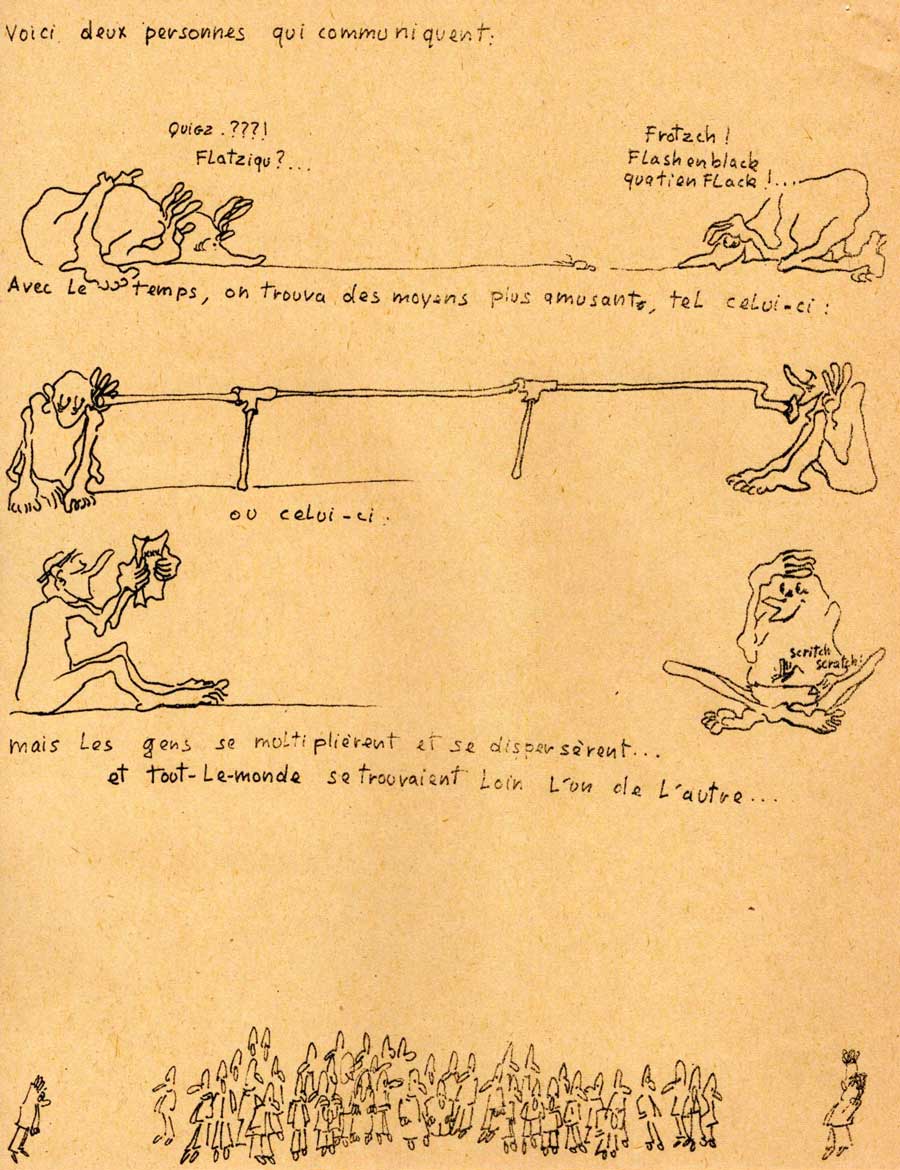 Voici deux personnes qui communiquent:
Quiez .???!
Flatziqu?...
Frotzch!
Flashenblack
quatien Flack!...
Avec le temps, on trouva des moyens plus amusants, tel celui-ci:
ou celui-ci:
scritch
scratch!
mais les gens se multiplièrent et se dispersèrent...
et tout-le-monde se trouvaient loin l'un de l'autre...